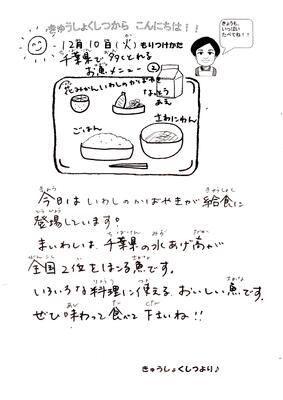 きゅうしょくしつから こんにちは!!
きょうも、
いっぱい
たべてね!!
12月10日(火) もりつけかた
千葉県で多くとれる
お魚メニュー②
花みかん いわしのかばやき
なっとう
あえ
さわにわん
ごはん
今日はいわしのかばやきが給食に
登場しています!
まいわしは、千葉県の水あげ高が
全国2位をほこる魚です。
いろいろな料理に使える、おいしい魚です。
ぜひ味わって食べて下さいね!!
きゅうしょくしつより♪